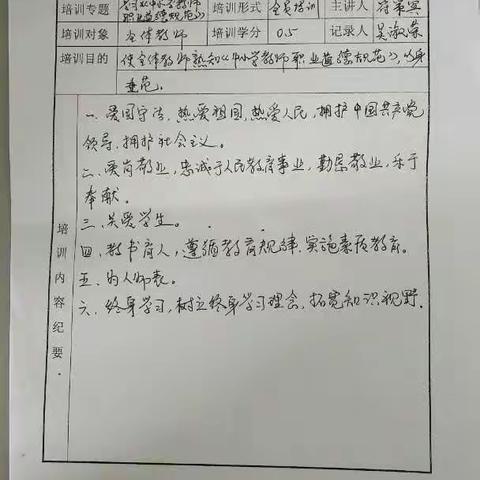 培训专题 学习《中小学教师职业道德规范》 培训形式 全员培训 主讲人
培训对象 全体教师 培训学分 0.5 记录人 吴淑荣
培训目的 使全体教师熟知《中小学教师职业道德规范》，以身
垂范。
一、爱国守法，热爱祖国，热爱人民，拥护中国共产党
领导、拥护社会主义。
二、爱岗敬业，忠诚于人民教育事业，勤恳敬业，乐于
奉献。
三、关爱学生。
四、教书育人，遵循教育规律，实施素质教育。
五、为人师表。
六、终身学习，树立终身学习理念，拓宽知识视野.
培训内容纪要